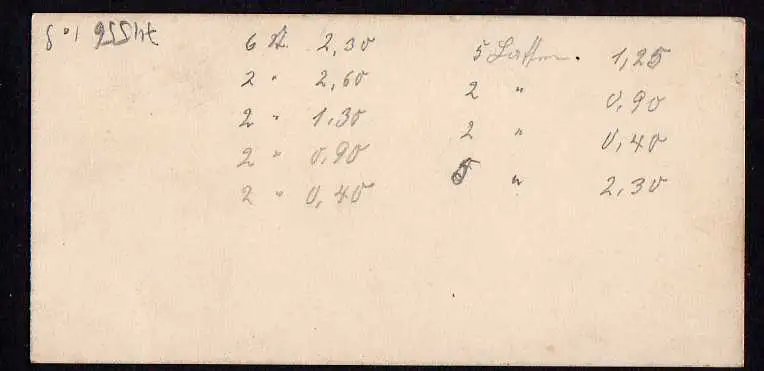 6 St. 2,30
2 " 2,60
2 " 1,30
2 " 0,90
2 " 0,40
5 Latten. 1,25
2 " 0,90
2 " 0,40
5 " 2,30